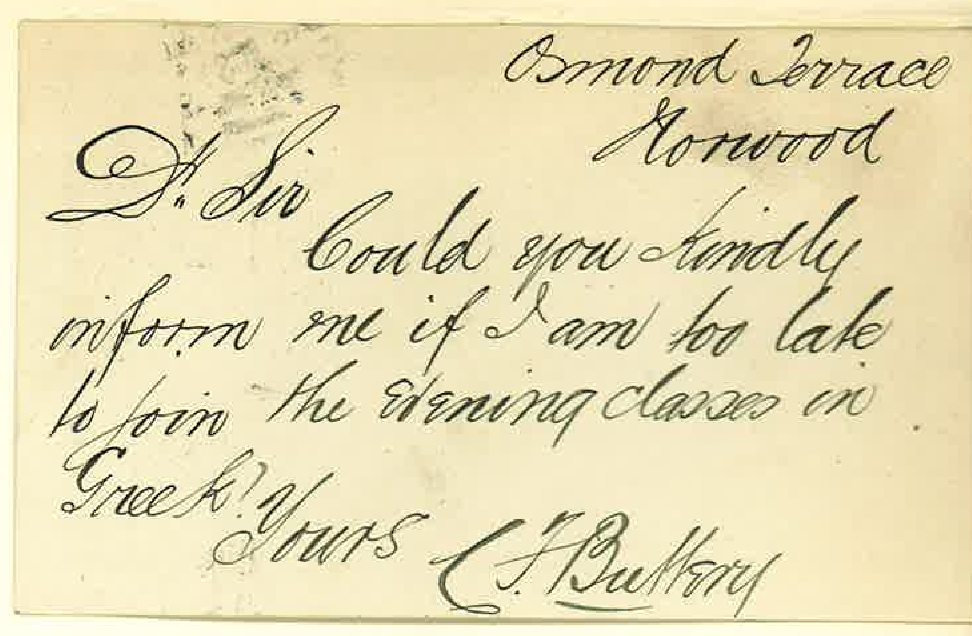 Osmond Terrace
Norwood
Dr. Sir
Could you kindly
inform me if I am too late
to join the evening classes in
Greek?
Yours C F. Buttery